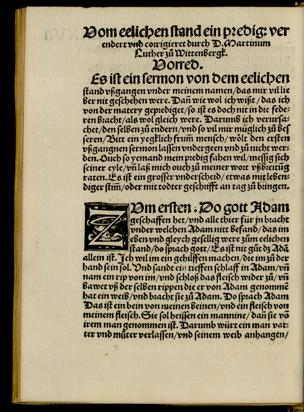 Vom eelichen stand ein predig: ver
endert vnd corrigieret durch D. Martinum
Luther zů Wittenbergk.
Vorred.
Es ist ein sermon von dem eelichen
stand vßgangen vnder meinem namen, das mir vil lie
ber nit geschehen were. Dañ wie wol ich wißt, das ich
von der matery gepredigt, so ist es doch nit in die fede-
ren bracht, als wol gleich were. Darumb ich verursa-
chet, den selben zů endern, vnd so vil mir müglich zů bes
seren. Bitt ein yeglich frum mensch, wölt den ersten
vßgangnen sermon lassen vndergeen vnd zů nicht wer-
den. Ouch so yemand mein predig fahen wel, messig sich
seiner eyle, vñ laß mich ouch zů meiner wort vßbreitung
raten. Es ist ein grosser vnderscheid, etwas mit leben-
diger stim, oder mit todter geschrifft an tag zů bringen.
ZVm ersten. Do gott Adam
geschaffen het, vnd alle thier für jn bracht
vnder welchen Adam nitt befand, das im
eben vnd gleych gesellig were zum eelichen
stand, do sprach gott, Es ist nit gůt dz Adã
allein ist. Ich wil im ein gehilffen machen, die im zů der
hand sein sol. Vnd sandt ein tieffen schlaff in Adam, vñ
nam ein rip von im, vnd schloß das fleisch wider zů, vñ
bawet vß der selben rippen die er von Adam genommẽ
hat ein weib, vnd bracht sie zů Adam. Do sprach Adam
Das ist ein bein von meinen beinen, vnd ein fleisch von
meinem fleisch. Sie sol heissen ein mannine, dañ sie võ
irem man genommen ist. Darumb würt ein man vat-
ter vnd můter verlassen, vnd seinem weib anhangen,